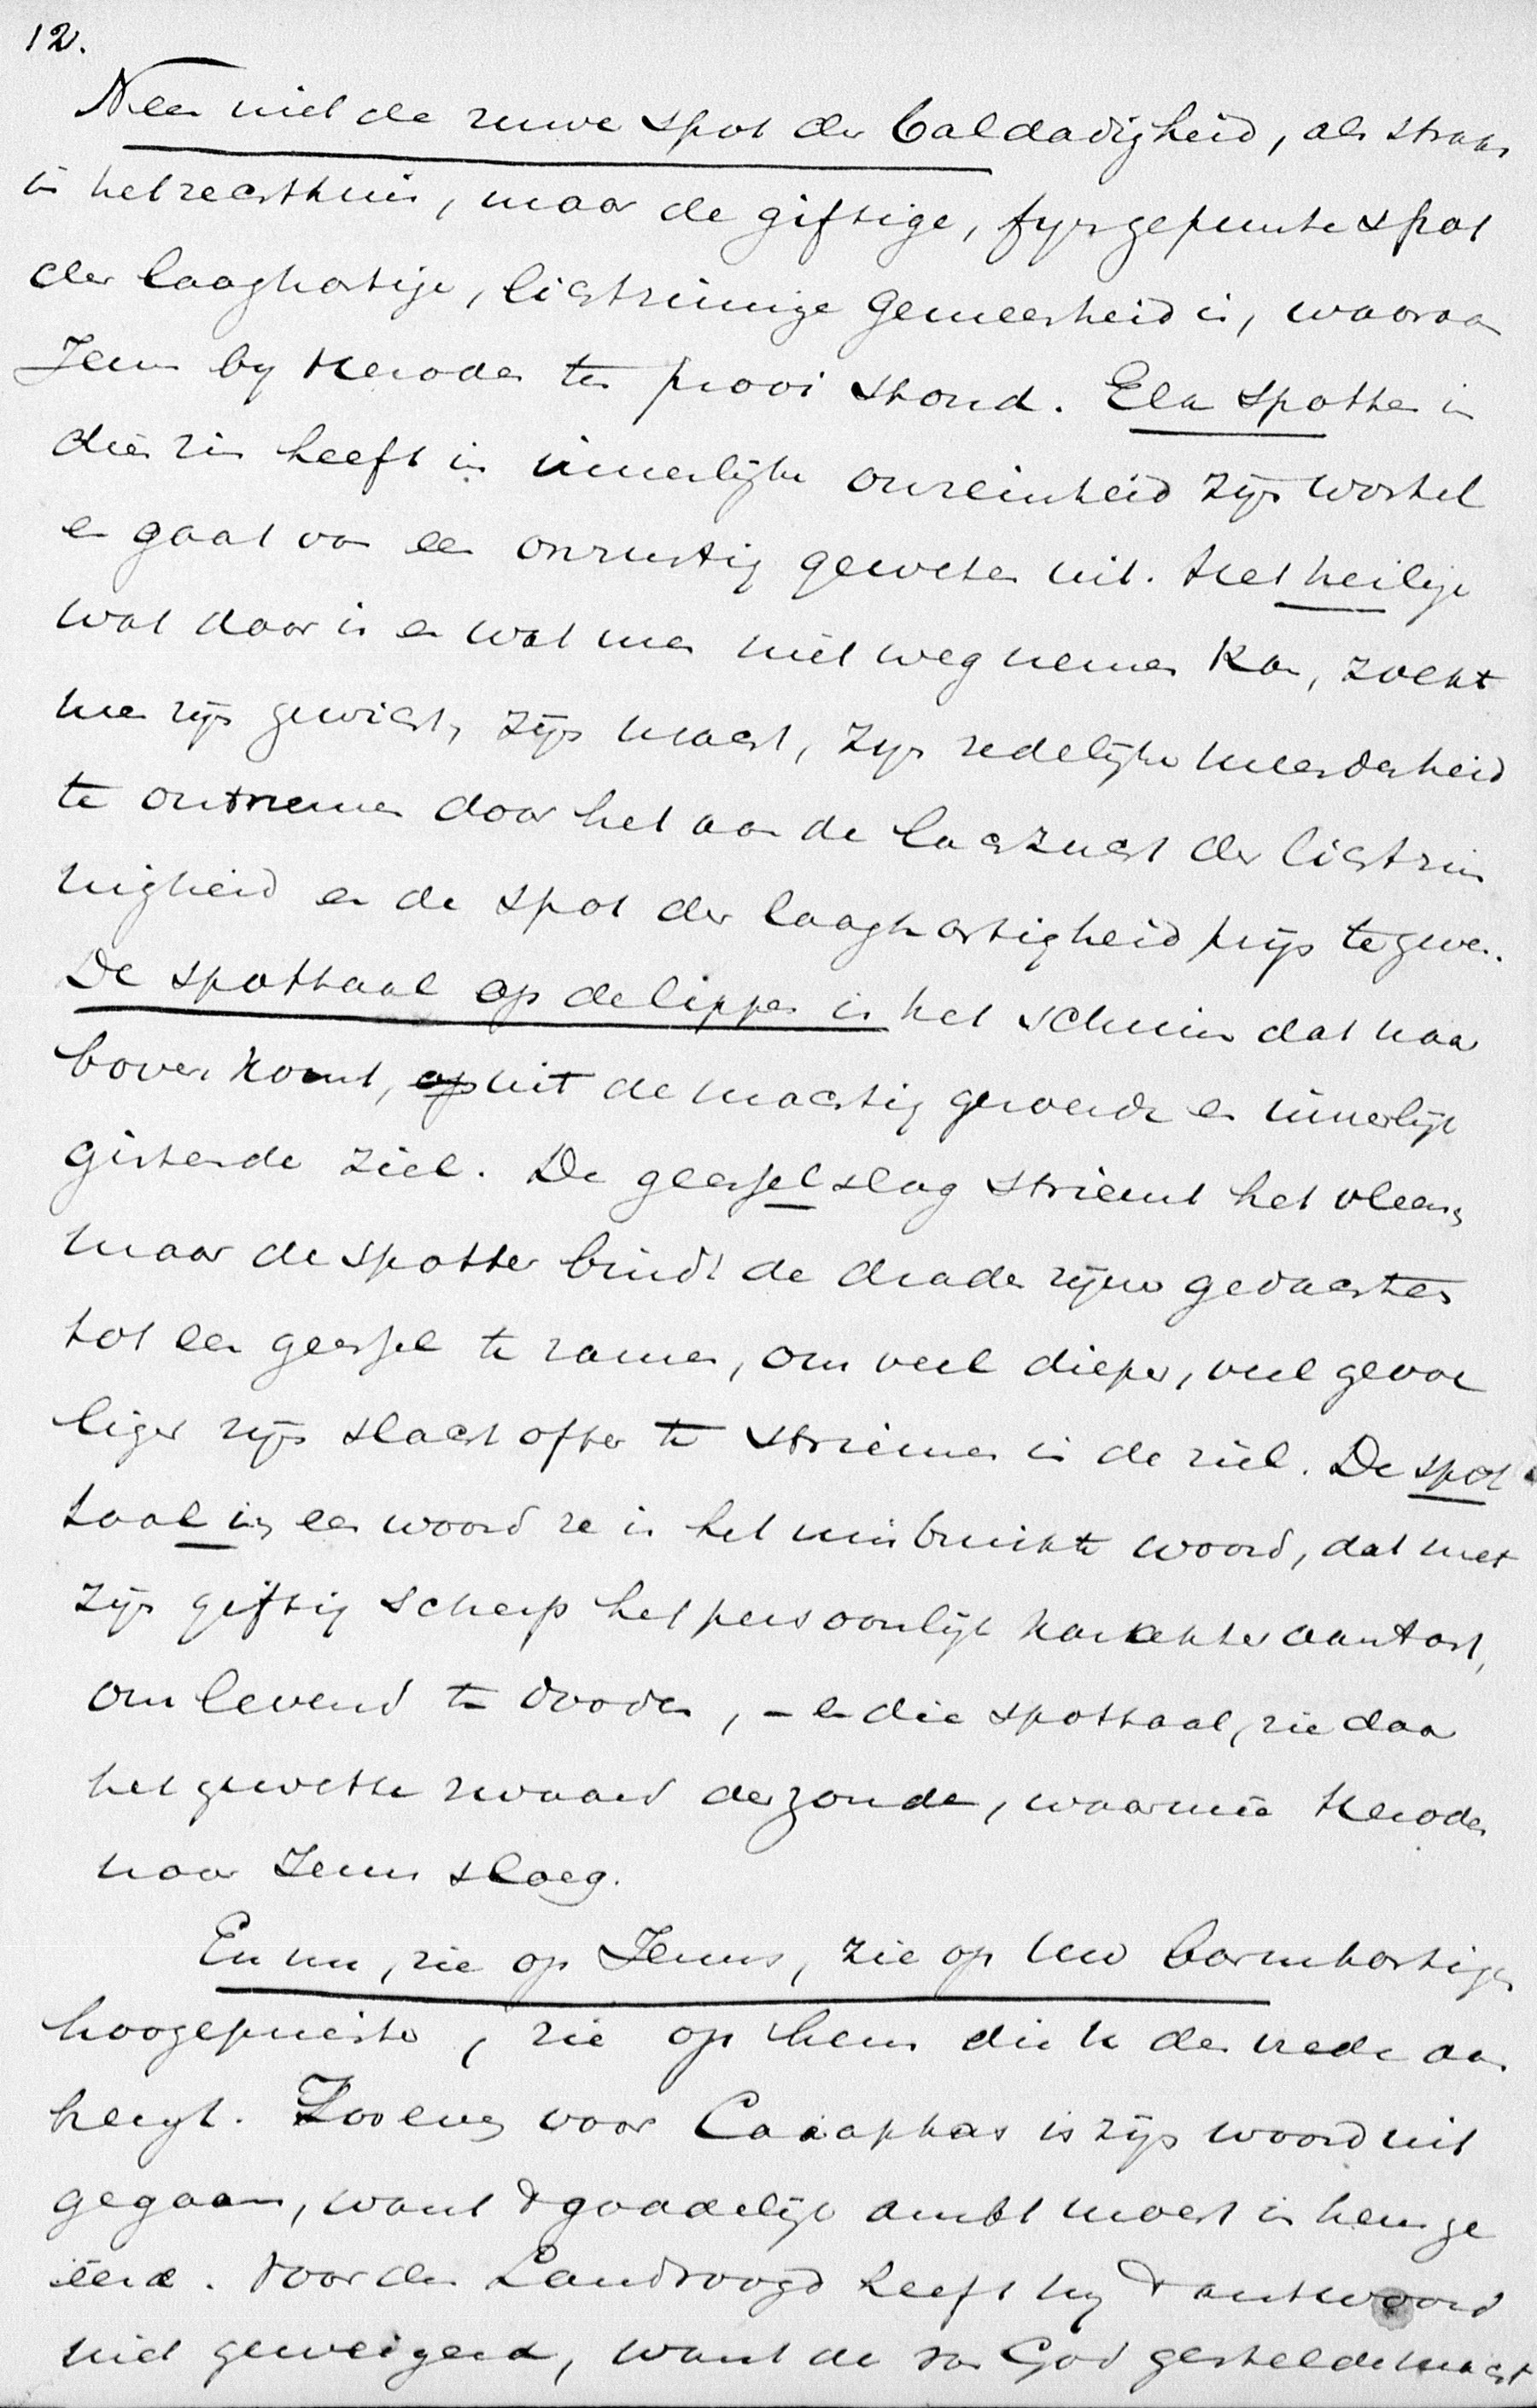 12.
Neen niet de ruwe spot der baldadigheid, als straks
in het rechthuis, maar de giftige, fyngepunte spot
der laaghartige, lichtzinnige gemeenheid is, waaraan
Jezus by Herodes ten prooi stond. Elk spotten in
dien zin heeft in innerlijke onreinheid zijn wortel
en gaat van een onrustig geweten uit. Het heilige
wat daar is en wat men niet wegnemen kan, zoekt
men zijn gewicht, zijn macht, zijn zedelijke meerderheid
te ontnemen door het aan de lachzucht der lichtzin
nigheid en de spot der laaghartigheid prijs te geven.
De spottaal op de lippen is het schuim dat naar
boven komt, op uit de machtig gewonde en innerlijk
gistende ziel. De geeselslag striemt het vleesch
maar de spotter bindt de draden zijner gedachten
tot een geessel te zamen, om veel dieper, veel gevoe
liger zijn slachtoffer te striemen in de ziel. De spot
taal in een woord ze is het misbruikte woord, dat met
zijn giftig scherp het persoonlijk karakter aantast,
om levend te dooden, – en die spottaal, zie daar
het gewette zwaard der zonde, waarmee Herodes
naar Jezus sloeg.
En nu, zie op Jezus, zie op uw barmhartigen
hoogepriester, zie op hem die u den vrede aan
hengt. Zooeven voor Caiaphas is zijn woord uit
gegaan, want 't goddelijk ambt moest in hem ge
ëerd. Voor den Landvoogd heeft hij 't antwoord
niet geweigerd, want de van God gestelde macht